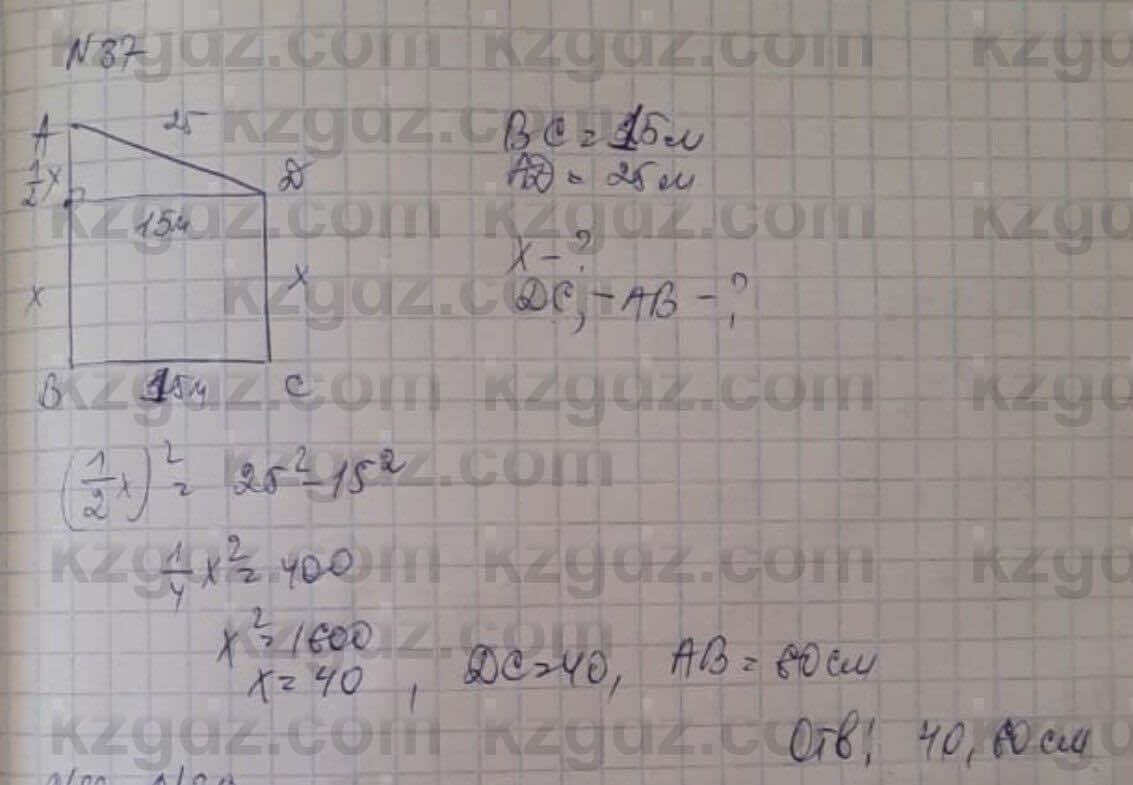 N 87
A 25 D
1/2 x
15м
x x
B 15м C
BC = 15м
AD = 25м
x - ?
DC, - AB - ?
(1/2 x)² = 25² - 15²
1/4 x² = 400
x² = 1600
x = 40, DC = 40, AB = 60 см
Отв: 40, 60 см
kzgdz.com